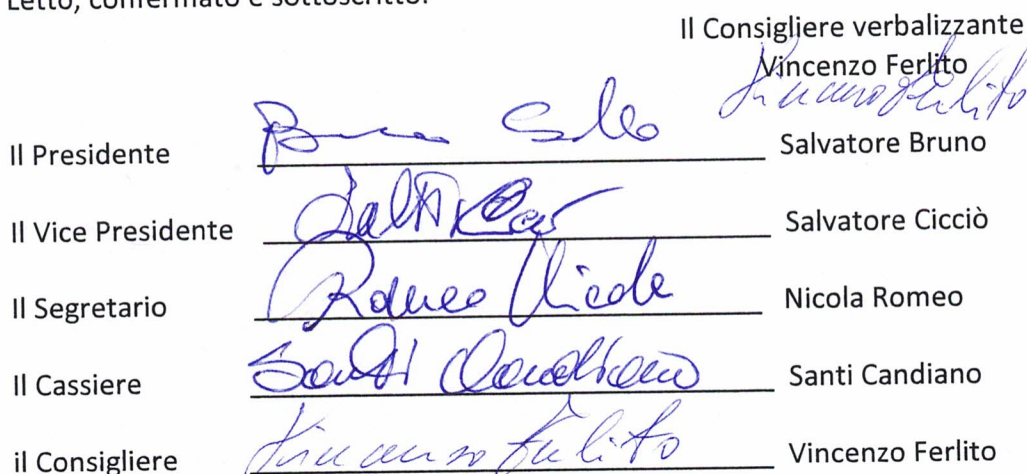 Letto, confermato e sottoscritto.
Il Consigliere verbalizzante
Vincenzo Ferlito
Vincenzo Ferlito
Il Presidente Bruno Salvo Salvatore Bruno
Il Vice Presidente Salvatore Cicciò
Il Segretario Romeo Nicola Nicola Romeo
Il Cassiere Santi Candiano Santi Candiano
il Consigliere Vincenzo Ferlito Vincenzo Ferlito